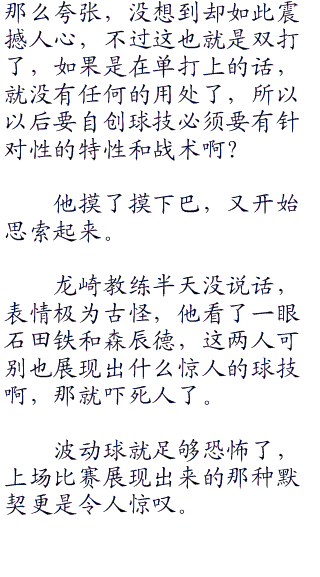 那么夸张，没想到却如此震
撼人心，不过这也就是双打
了，如果是在单打上的话，
就没有任何的用处了，所以
以后要自创球技必须要有针
对性的特性和战术啊？
他摸了摸下巴，又开始
思索起来。
龙崎教练半天没说话，
表情极为古怪，他看了一眼
石田铁和森辰德，这两人可
别也展现出什么惊人的球技
啊，那就吓死人了。
波动球就足够恐怖了，
上场比赛展现出来的那种默
契更是令人惊叹。